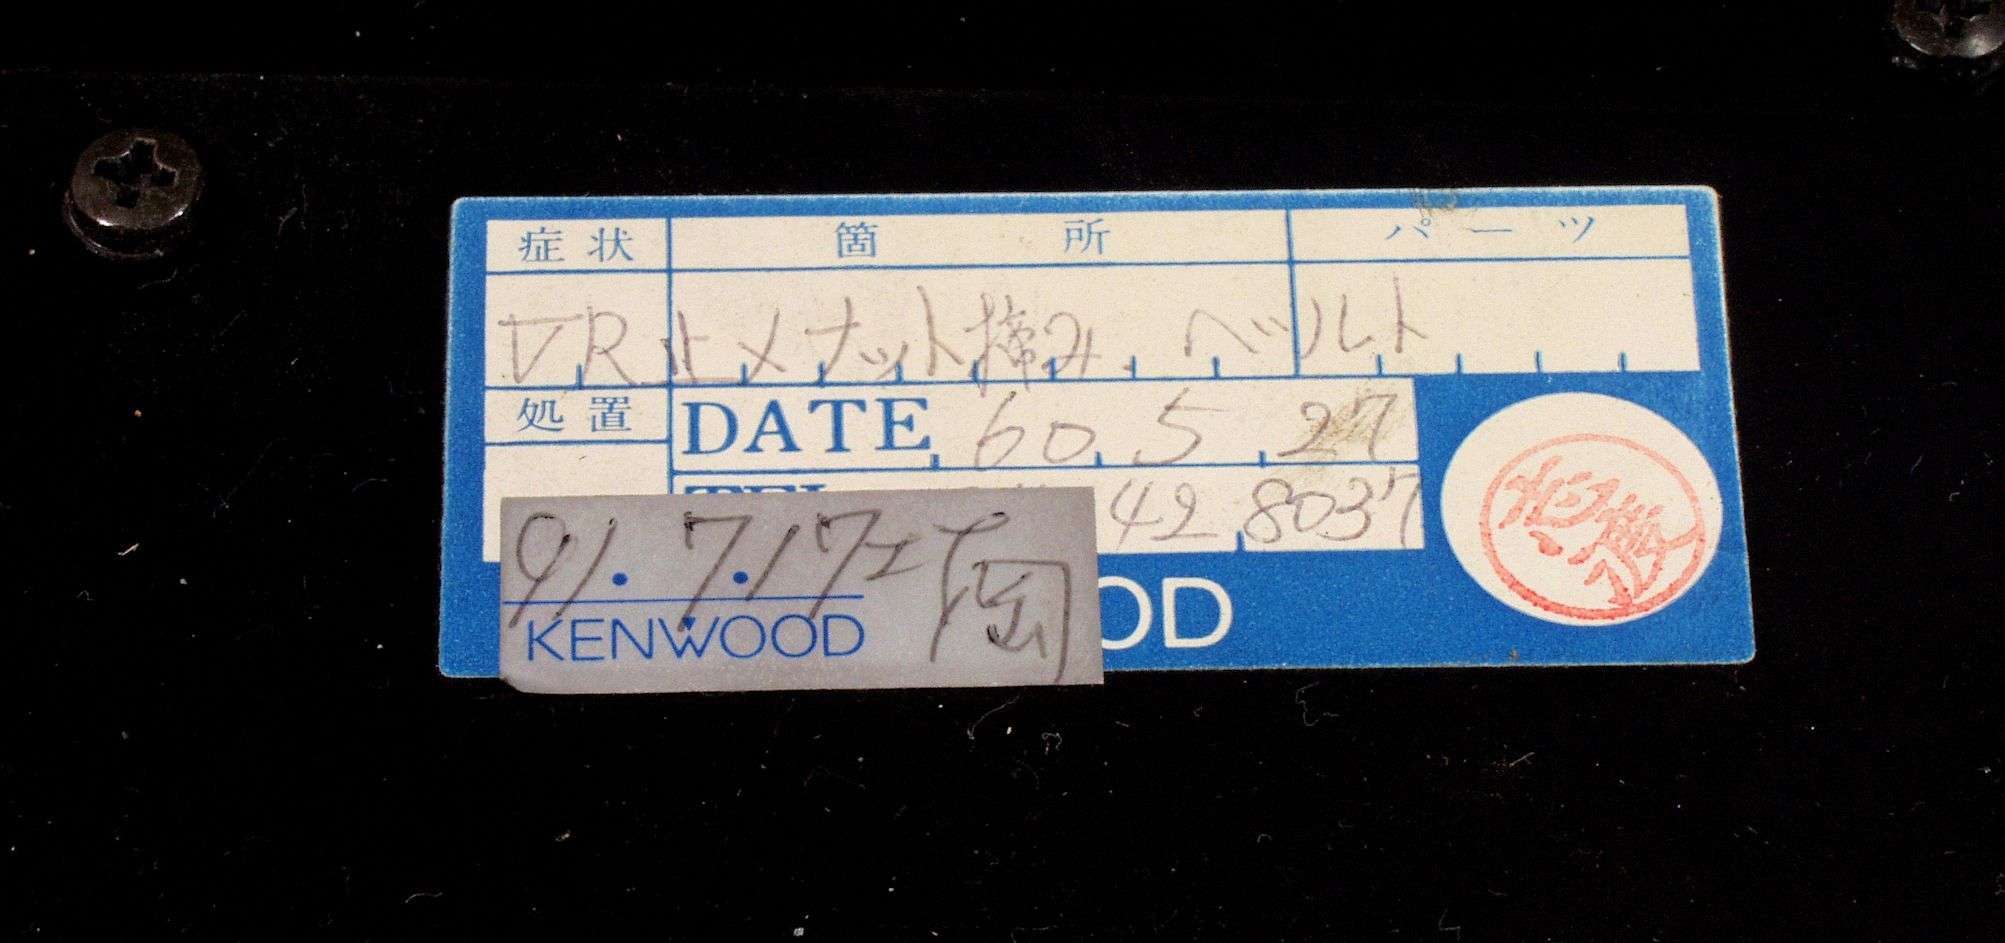 症状 箇所 パーツ
VR止メナット締み、ベルト
処置 DATE 60 5 27
42 8037
91.7.17
KENWOOD
OD